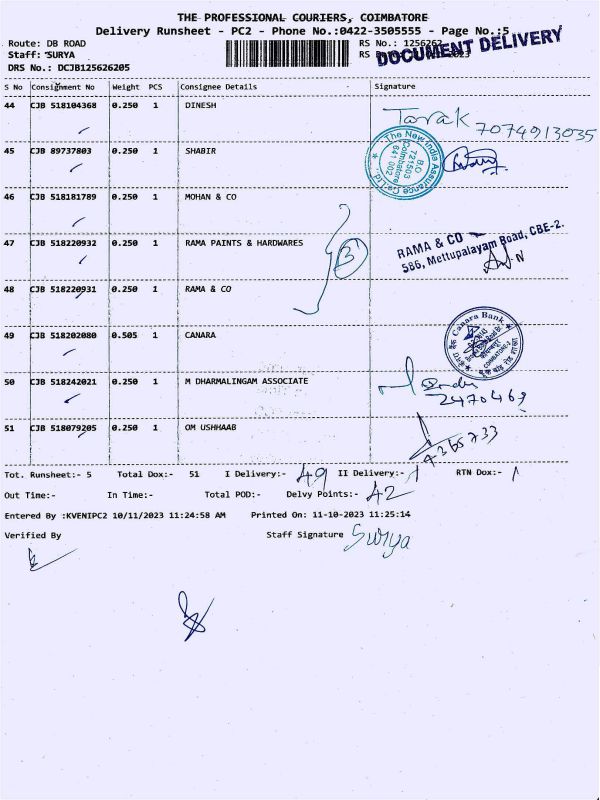 THE PROFESSIONAL COURIERS, COIMBATORE
Delivery Runsheet - PC2 - Phone No.:0422-3505555 - Page No.:5
Route: DB ROAD RS No.: 1256262
Staff: SURYA RS
DOCUMENT DELIVERY
DRS No.: DCJB125626205
S No Consignment No Weight PCS Consignee Details Signature
44 CJB 518104368 0.250 1 DINESH
Tarak 7074913035
45 CJB 89737803 0.250 1 SHABIR
The New India Assurance Co. Ltd.
B.O
721503
Coimbatore
641 002
46 CJB 518181789 0.250 1 MOHAN & CO
47 CJB 518220932 0.250 1 RAMA PAINTS & HARDWARES
3
RAMA & CO
586, Mettupalayam Road, CBE-2.
48 CJB 518220931 0.250 1 RAMA & CO
49 CJB 518202080 0.505 1 CANARA
Canara Bank
50 CJB 518242021 0.250 1 M DHARMALINGAM ASSOCIATE
2470469
51 CJB 518079205 0.250 1 OM USHHAAB
4365733
Tot. Runsheet:- 5 Total Dox:- 51 I Delivery:- 49 II Delivery:- 1 RTN Dox:- 1
Out Time:- In Time:- Total POD:- Delvy Points:- 42
Entered By :KVENIPC2 10/11/2023 11:24:58 AM Printed On: 11-10-2023 11:25:14
Verified By Staff Signature Surya